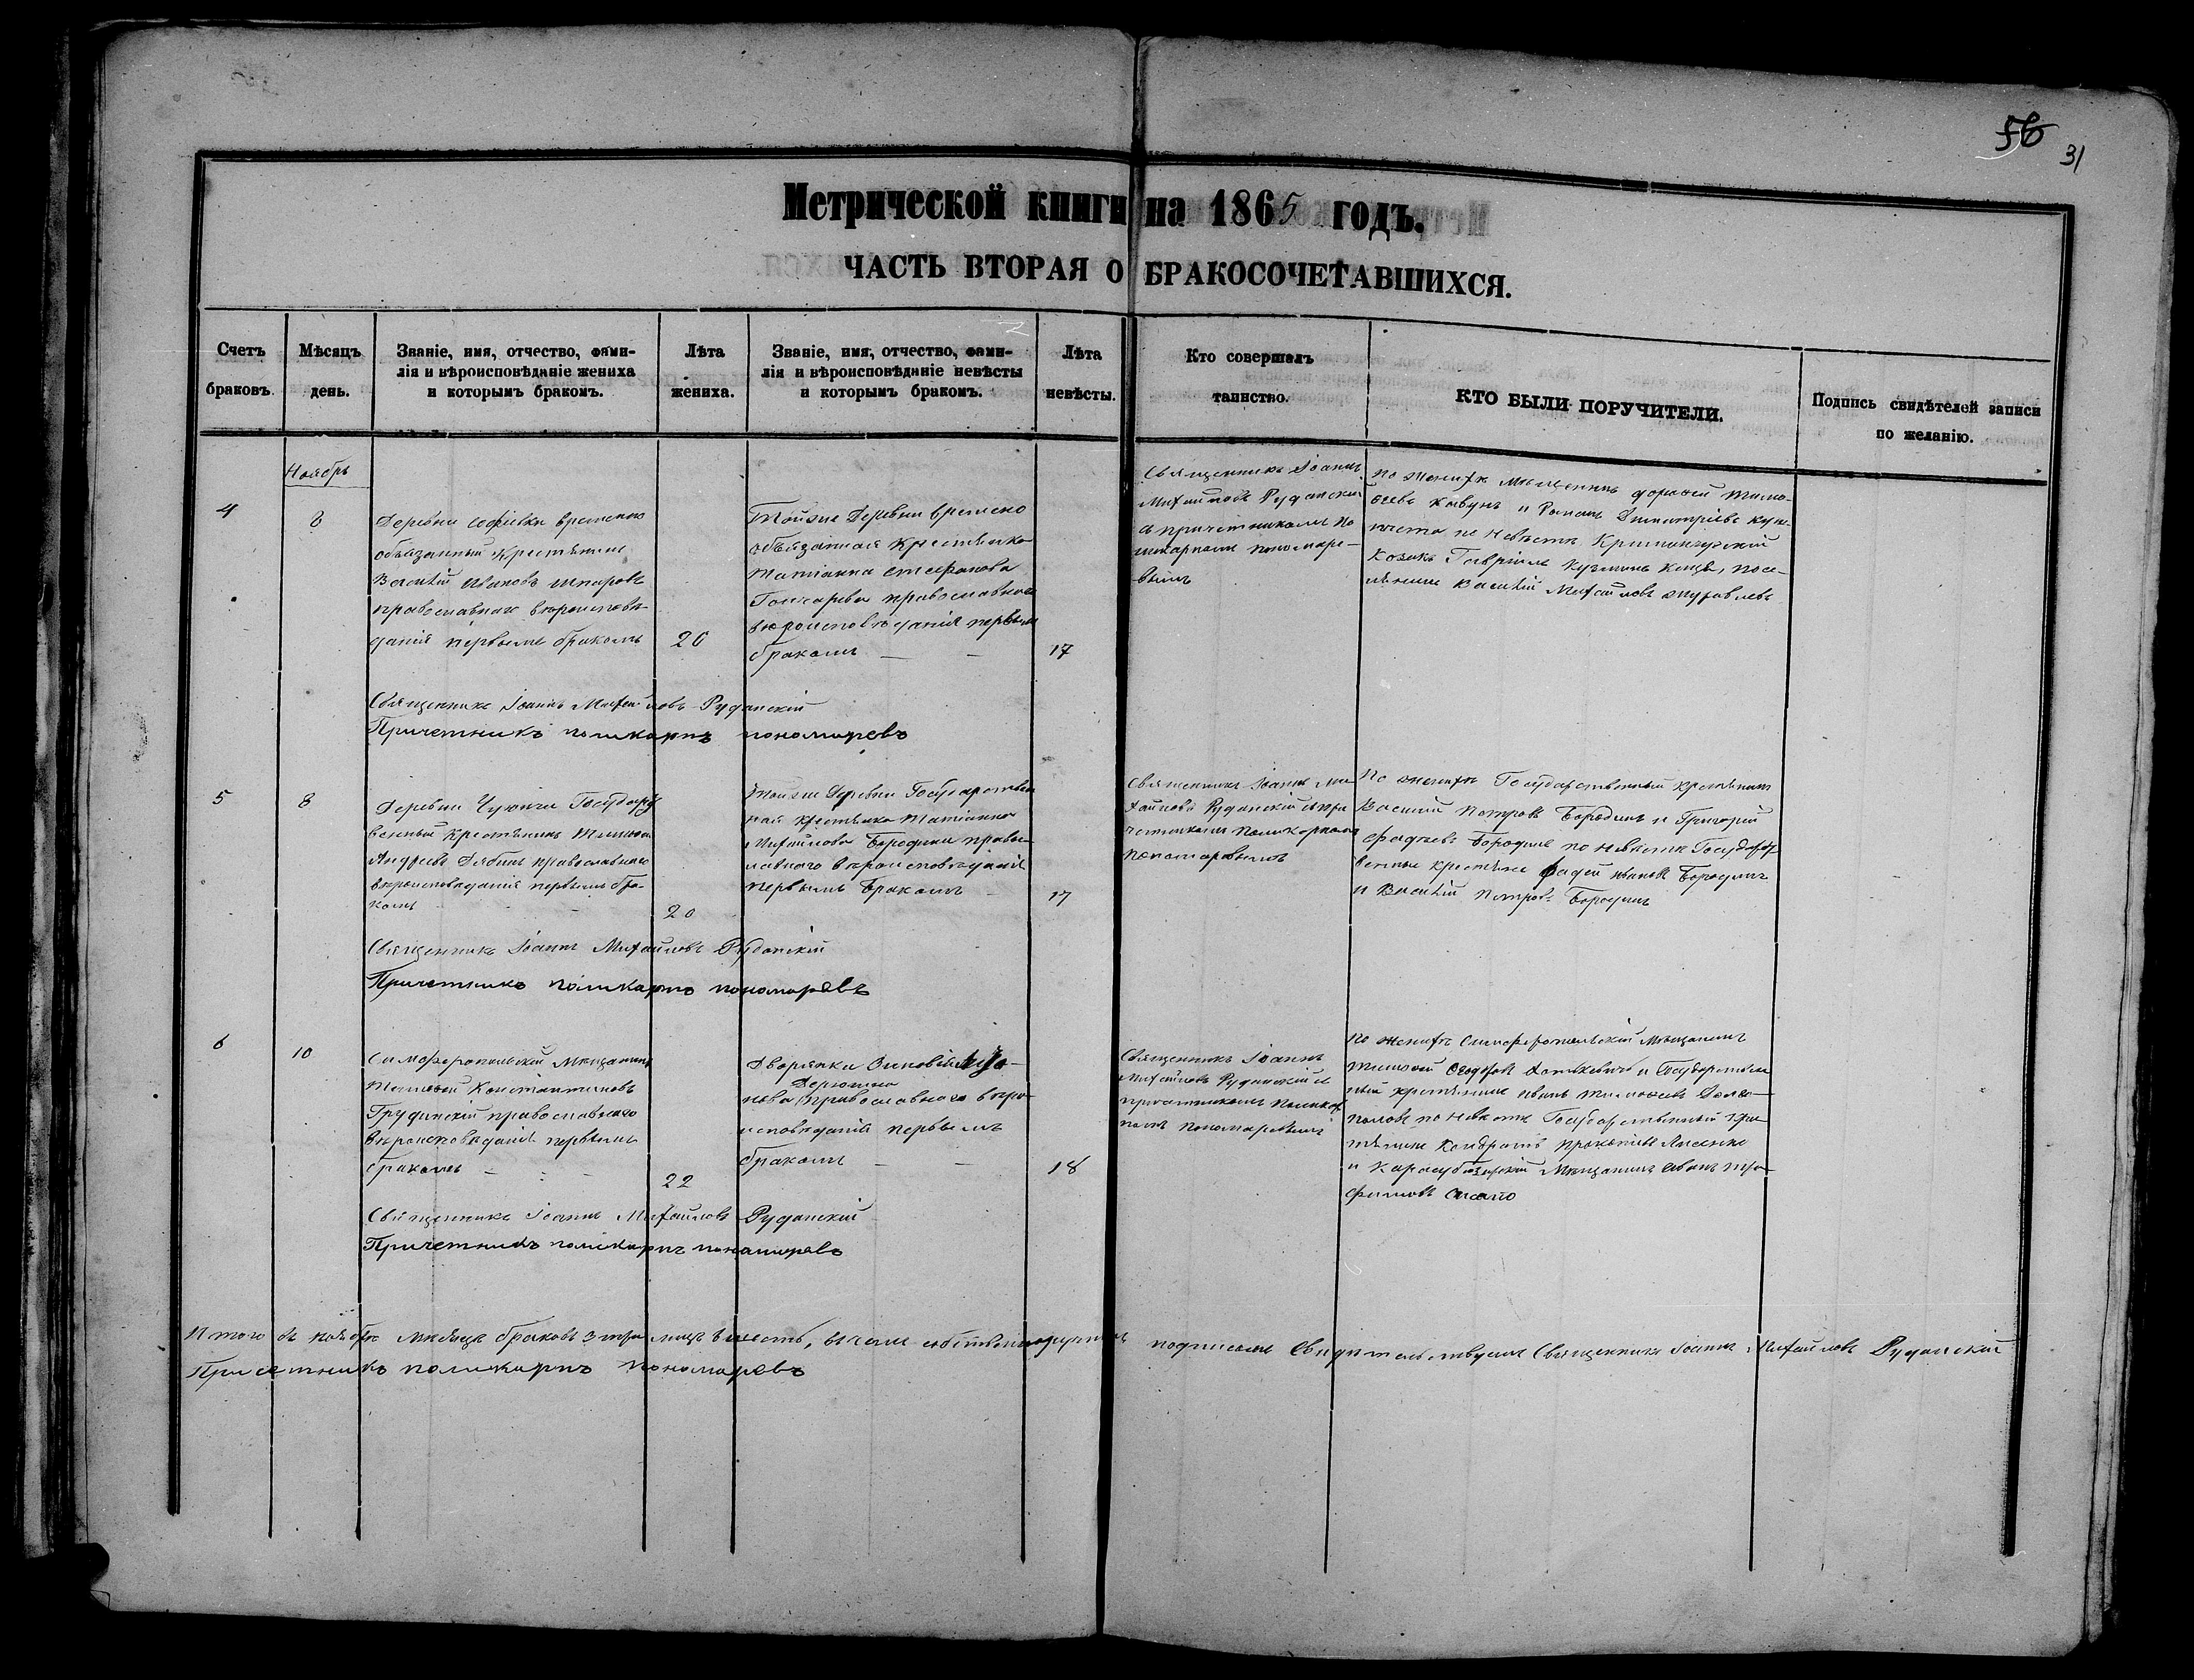 56
31
Метрической книги на 1865 годъ.
ЧАСТЬ ВТОРАЯ О БРАКОСОЧЕТАВШИХСЯ.
Счетъ браковъ.
Мѣсяцъ день.
Званіе, имя, отчество, фами-
лія и вѣроисповѣданіе жениха
и которымъ бракомъ.
Лѣта жениха.
Званіе, имя, отчество, фами-
лія и вѣроисповѣданіе невѣсты
и которымъ бракомъ.
Лѣта невѣсты.
Кто совершалъ таинство.
КТО БЫЛИ ПОРУЧИТЕЛИ.
Подпись свидѣтелей записи
по желанію.
Ноябрь
4
8
Деревни Софіевки временно
обязанный крестьянинъ
Василій Ивановъ Шпаровъ
православнаго вѣроисповѣ-
данія первымъ бракомъ
20
Тойже Деревни временно
обязанная крестьянка
Татіанна Стефанова
Гончарева православнаго
вѣроисповѣданія первымъ
бракомъ
17
Священникъ Іоаннъ
Михайловъ Руданскій
съ причетникомъ По
ликарпомъ Пономаре-
вымъ
По женихѣ мѣщанинъ Дорофей Тимо-
феевъ Кавунъ и Романъ Димитріевъ
по невѣстѣ Кременчугскій
Козакъ Гавріилъ Кузминъ посе-
лянинъ Василій Михайловъ Журавлевъ
Священникъ Іоаннъ Михайловъ Руданскій
Причетникъ Поликарпъ Пономаревъ
5
8
Деревни Чуюнчи Государст
венный крестьянинъ Тимофей
Андреевъ Дябинъ православнаго
вѣроисповѣданія первымъ бра-
комъ
20
Тойже Деревни Государствен
ная крестьянка Татіанна
Михайлова Бородина правос-
лавнаго вѣроисповѣданія
первымъ бракомъ
17
Священникъ Іоаннъ Ми-
хайловъ Руданскій съ при
четникомъ Поликарпомъ
Пономаревымъ
По женихѣ Государственный крестьянинъ
Василій Петровъ Бородинъ и Григорій
Фадѣевъ Бородинъ по невѣстѣ Государст
венные крестьяне Фадей Ивановъ Бородинъ
и Василій Петровъ Бородинъ
Священникъ Іоаннъ Михайловъ Руданскій
Причетникъ Поликарпъ Пономаревъ
6
10
Симферопольскій Мѣщанинъ
Тимофей Константиновъ
Грудинскій православнаго
вѣроисповѣданія первымъ
бракомъ
22
Дворянка Зиновія
нова Дерюгина православнаго вѣро-
исповѣданія первымъ
бракомъ
18
Священникъ Іоаннъ
Михайловъ Руданскій съ
причетникомъ Поликар
помъ Пономаревымъ
По женихѣ Симферопольскій Мѣщанинъ
Тимофей Ѳеодоровъ и Государствен
ный крестьянинъ Иванъ Тимофеевъ Долго-
половъ по невѣстѣ Государственный кре
стьянинъ Кондратъ Прокопіевъ Лисенко
и Карасубазарскій Мѣщанинъ Иванъ Тро-
фимовъ
Священникъ Іоаннъ Михайловъ Руданскій
Причетникъ Поликарпъ Пономаревъ
Итого въ ноябрѣ мѣсяцѣ браковъ 3 три лицъ шесть, въ чемъ собственноручнымъ подписомъ Свидѣтельствуемъ Священникъ Іоаннъ Михайловъ Руданскій
Причетникъ Поликарпъ Пономаревъ